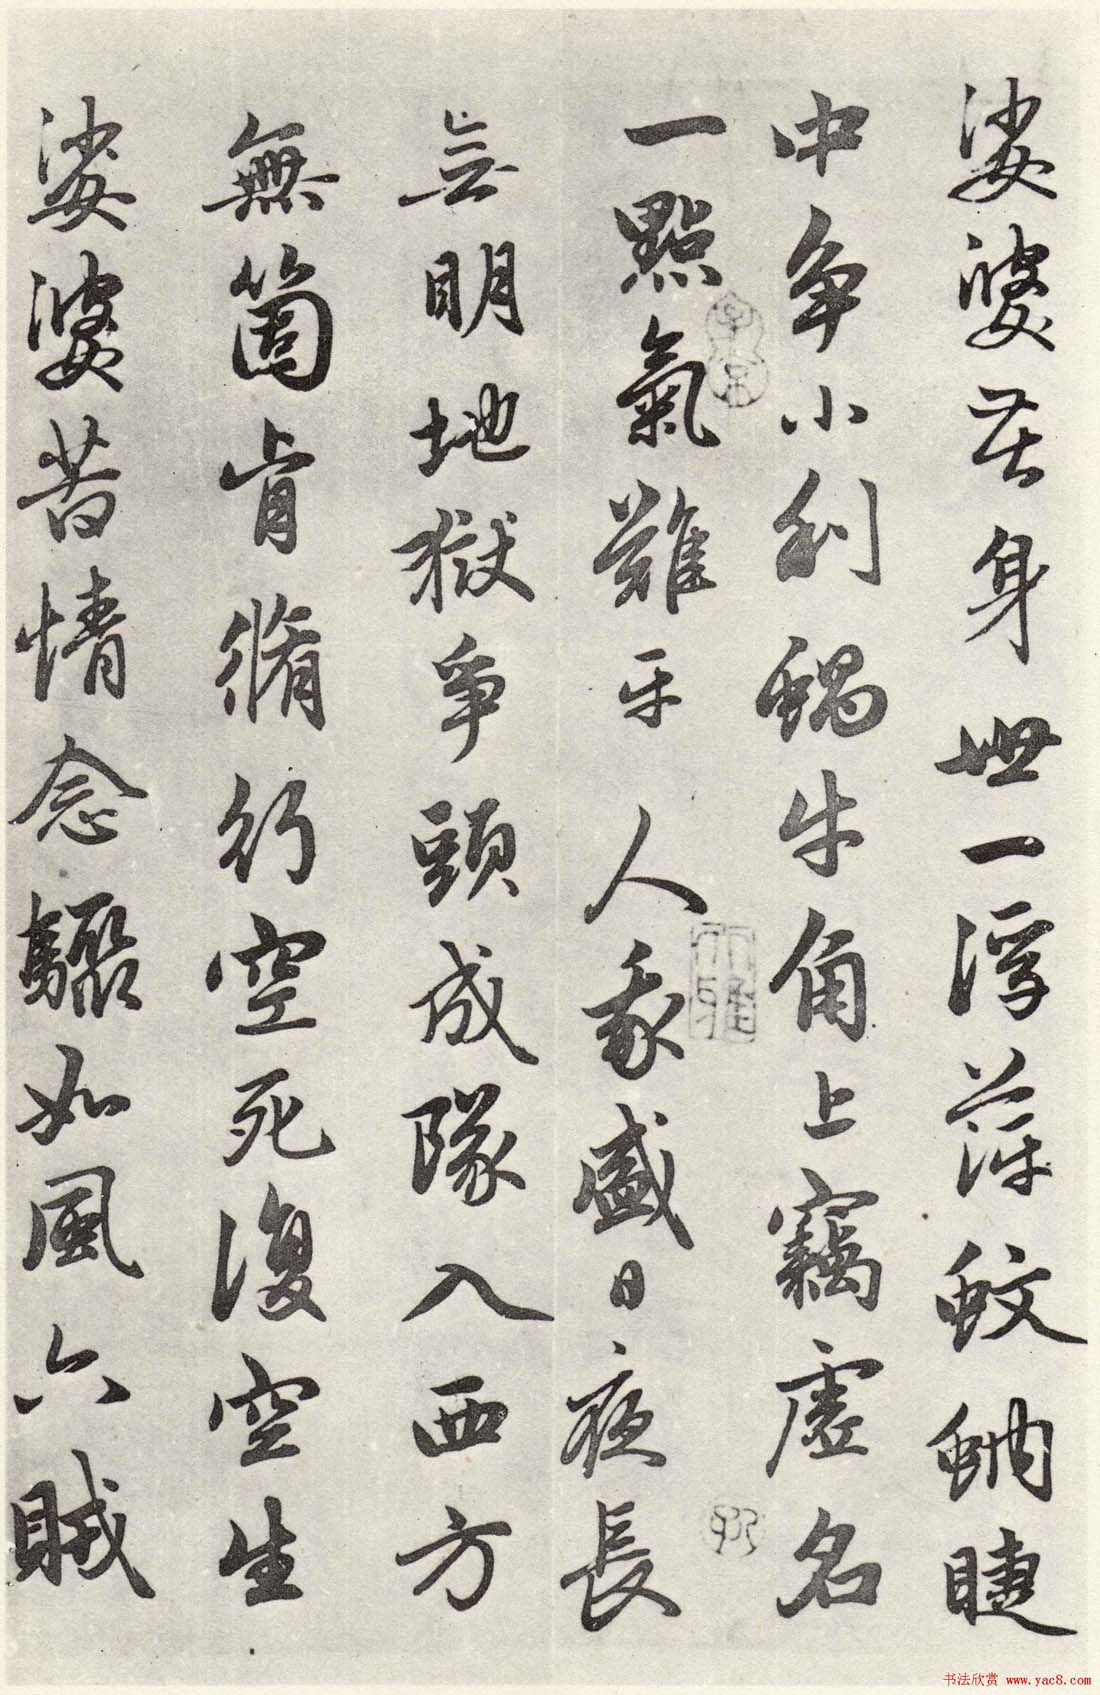 娑婆苦身世一浮萍蚊蚋睫
中争小利蝸牛角上竊虛名
一點氣難平 人我盛日夜長
無明地獄爭頭成隊入西方
無箇肯脩行空死復空生
娑婆苦情念驟如風六賊
书法欣赏 www.yac8.com